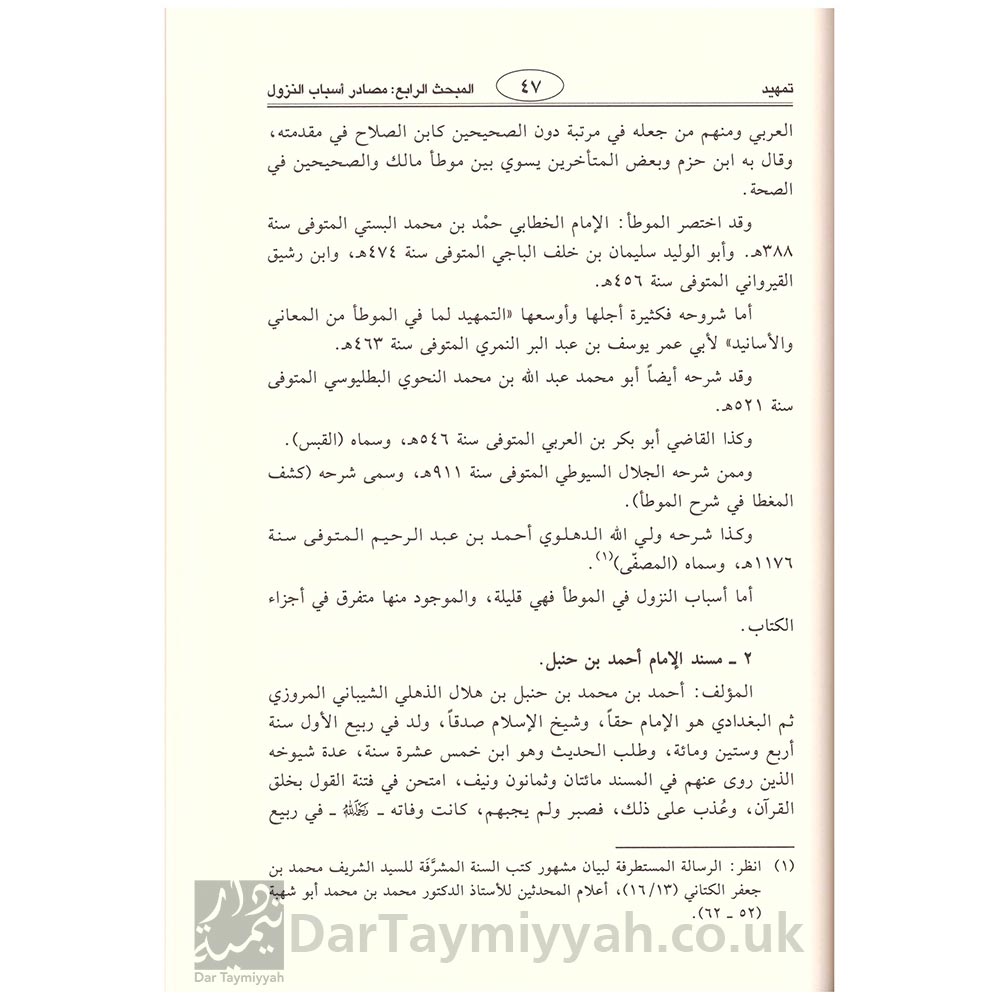 تمهيد ٤٧ المبحث الرابع: مصادر أسباب النزول
العربي ومنهم من جعله في مرتبة دون الصحيحين كابن الصلاح في مقدمته،
وقال به ابن حزم وبعض المتأخرين يسوي بين موطأ مالك والصحيحين في
الصحة.
وقد اختصر الموطأ: الإمام الخطابي حمْد بن محمد البستي المتوفى سنة
٣٨٨هـ. وأبو الوليد سليمان بن خلف الباجي المتوفى سنة ٤٧٤هـ، وابن رشيق
القيرواني المتوفى سنة ٤٥٦هـ.
أما شروحه فكثيرة أجلها وأوسعها «التمهيد لما في الموطأ من المعاني
والأسانيد» لأبي عمر يوسف بن عبد البر النمري المتوفى سنة ٤٦٣هـ.
وقد شرحه أيضاً أبو محمد عبد الله بن محمد النحوي البطليوسي المتوفى
سنة ٥٢١هـ.
وكذا القاضي أبو بكر بن العربي المتوفى سنة ٥٤٦هـ، وسماه (القبس).
وممن شرحه الجلال السيوطي المتوفى سنة ٩١١هـ، وسمى شرحه (كشف
المغطا في شرح الموطأ).
وكذا شرحه ولي الله الدهلوي أحمد بن عبد الرحيم المتوفى سنة
١١٧٦هـ، وسماه (المصفّى)(١).
أما أسباب النزول في الموطأ فهي قليلة، والموجود منها متفرق في أجزاء
الكتاب.
٢ ـ مسند الإمام أحمد بن حنبل.
المؤلف: أحمد بن محمد بن حنبل بن هلال الذهلي الشيباني المروزي
ثم البغدادي هو الإمام حقاً، وشيخ الإسلام صدقاً، ولد في ربيع الأول سنة
أربع وستين ومائة، وطلب الحديث وهو ابن خمس عشرة سنة، عدة شيوخه
الذين روى عنهم في المسند مائتان وثمانون ونيف، امتحن في فتنة القول بخلق
القرآن، وعُذب على ذلك، فصبر ولم يجبهم، كانت وفاته ـ رَحِمَهُ اللهُ ـ في ربيع
(١) انظر: الرسالة المستطرفة لبيان مشهور كتب السنة المشرَّفَة للسيد الشريف محمد بن
جعفر الكتاني (١٦/١٣)، أعلام المحدثين للأستاذ الدكتور محمد بن محمد أبو شهبة
(٥٢ ـ ٦٢).
دار تيمية
Dar Taymiyyah
DarTaymiyyah.co.uk